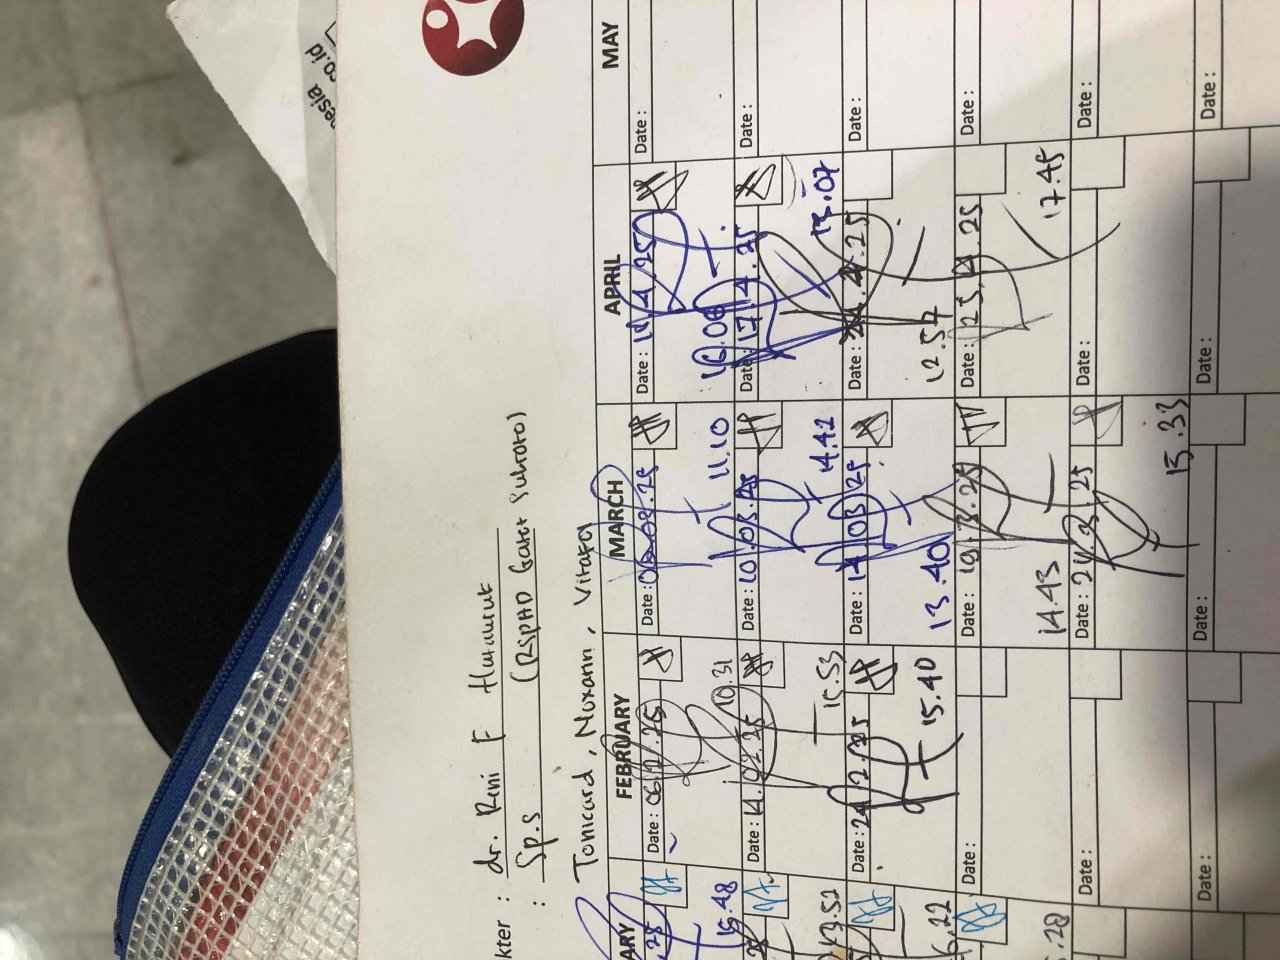 kter : dr. Reni F
: Sp.S (RSPAD Gatot Subroto)
Tonicard, Noxann,
ARY FEBRUARY MARCH APRIL MAY
25 Date : 06.2.25 Date : Date : Date :
15.48 10.31 11.10 16.06
Date : 14.02.25 Date : 10.03.25 Date : 17.4.25 Date :
13.52 15.53 14.42 15.07
Date : 24.2.25 Date : 14.03.25 Date : Date :
15.40 13.40 12.57
Date : Date : 19.3.25 Date : 25.4.25 Date :
.28 14.43 17.45
Date : Date : 24.3.25 Date : Date :
15.33
Date : Date : Date : Date :
esia
co.id